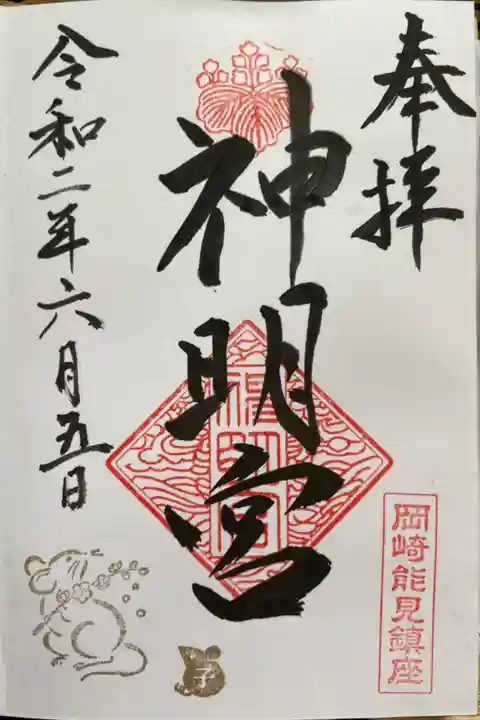 奉拝
神明宮
神明宮
岡崎能見鎮座
令和二年六月五日
子